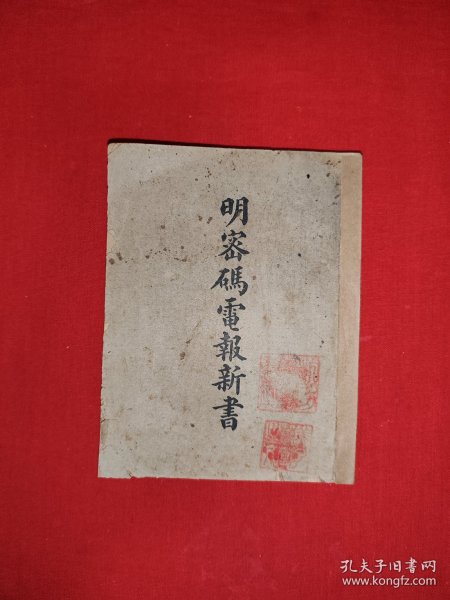 明密碼電報新書
孔夫子旧书网
www.kongfz.com